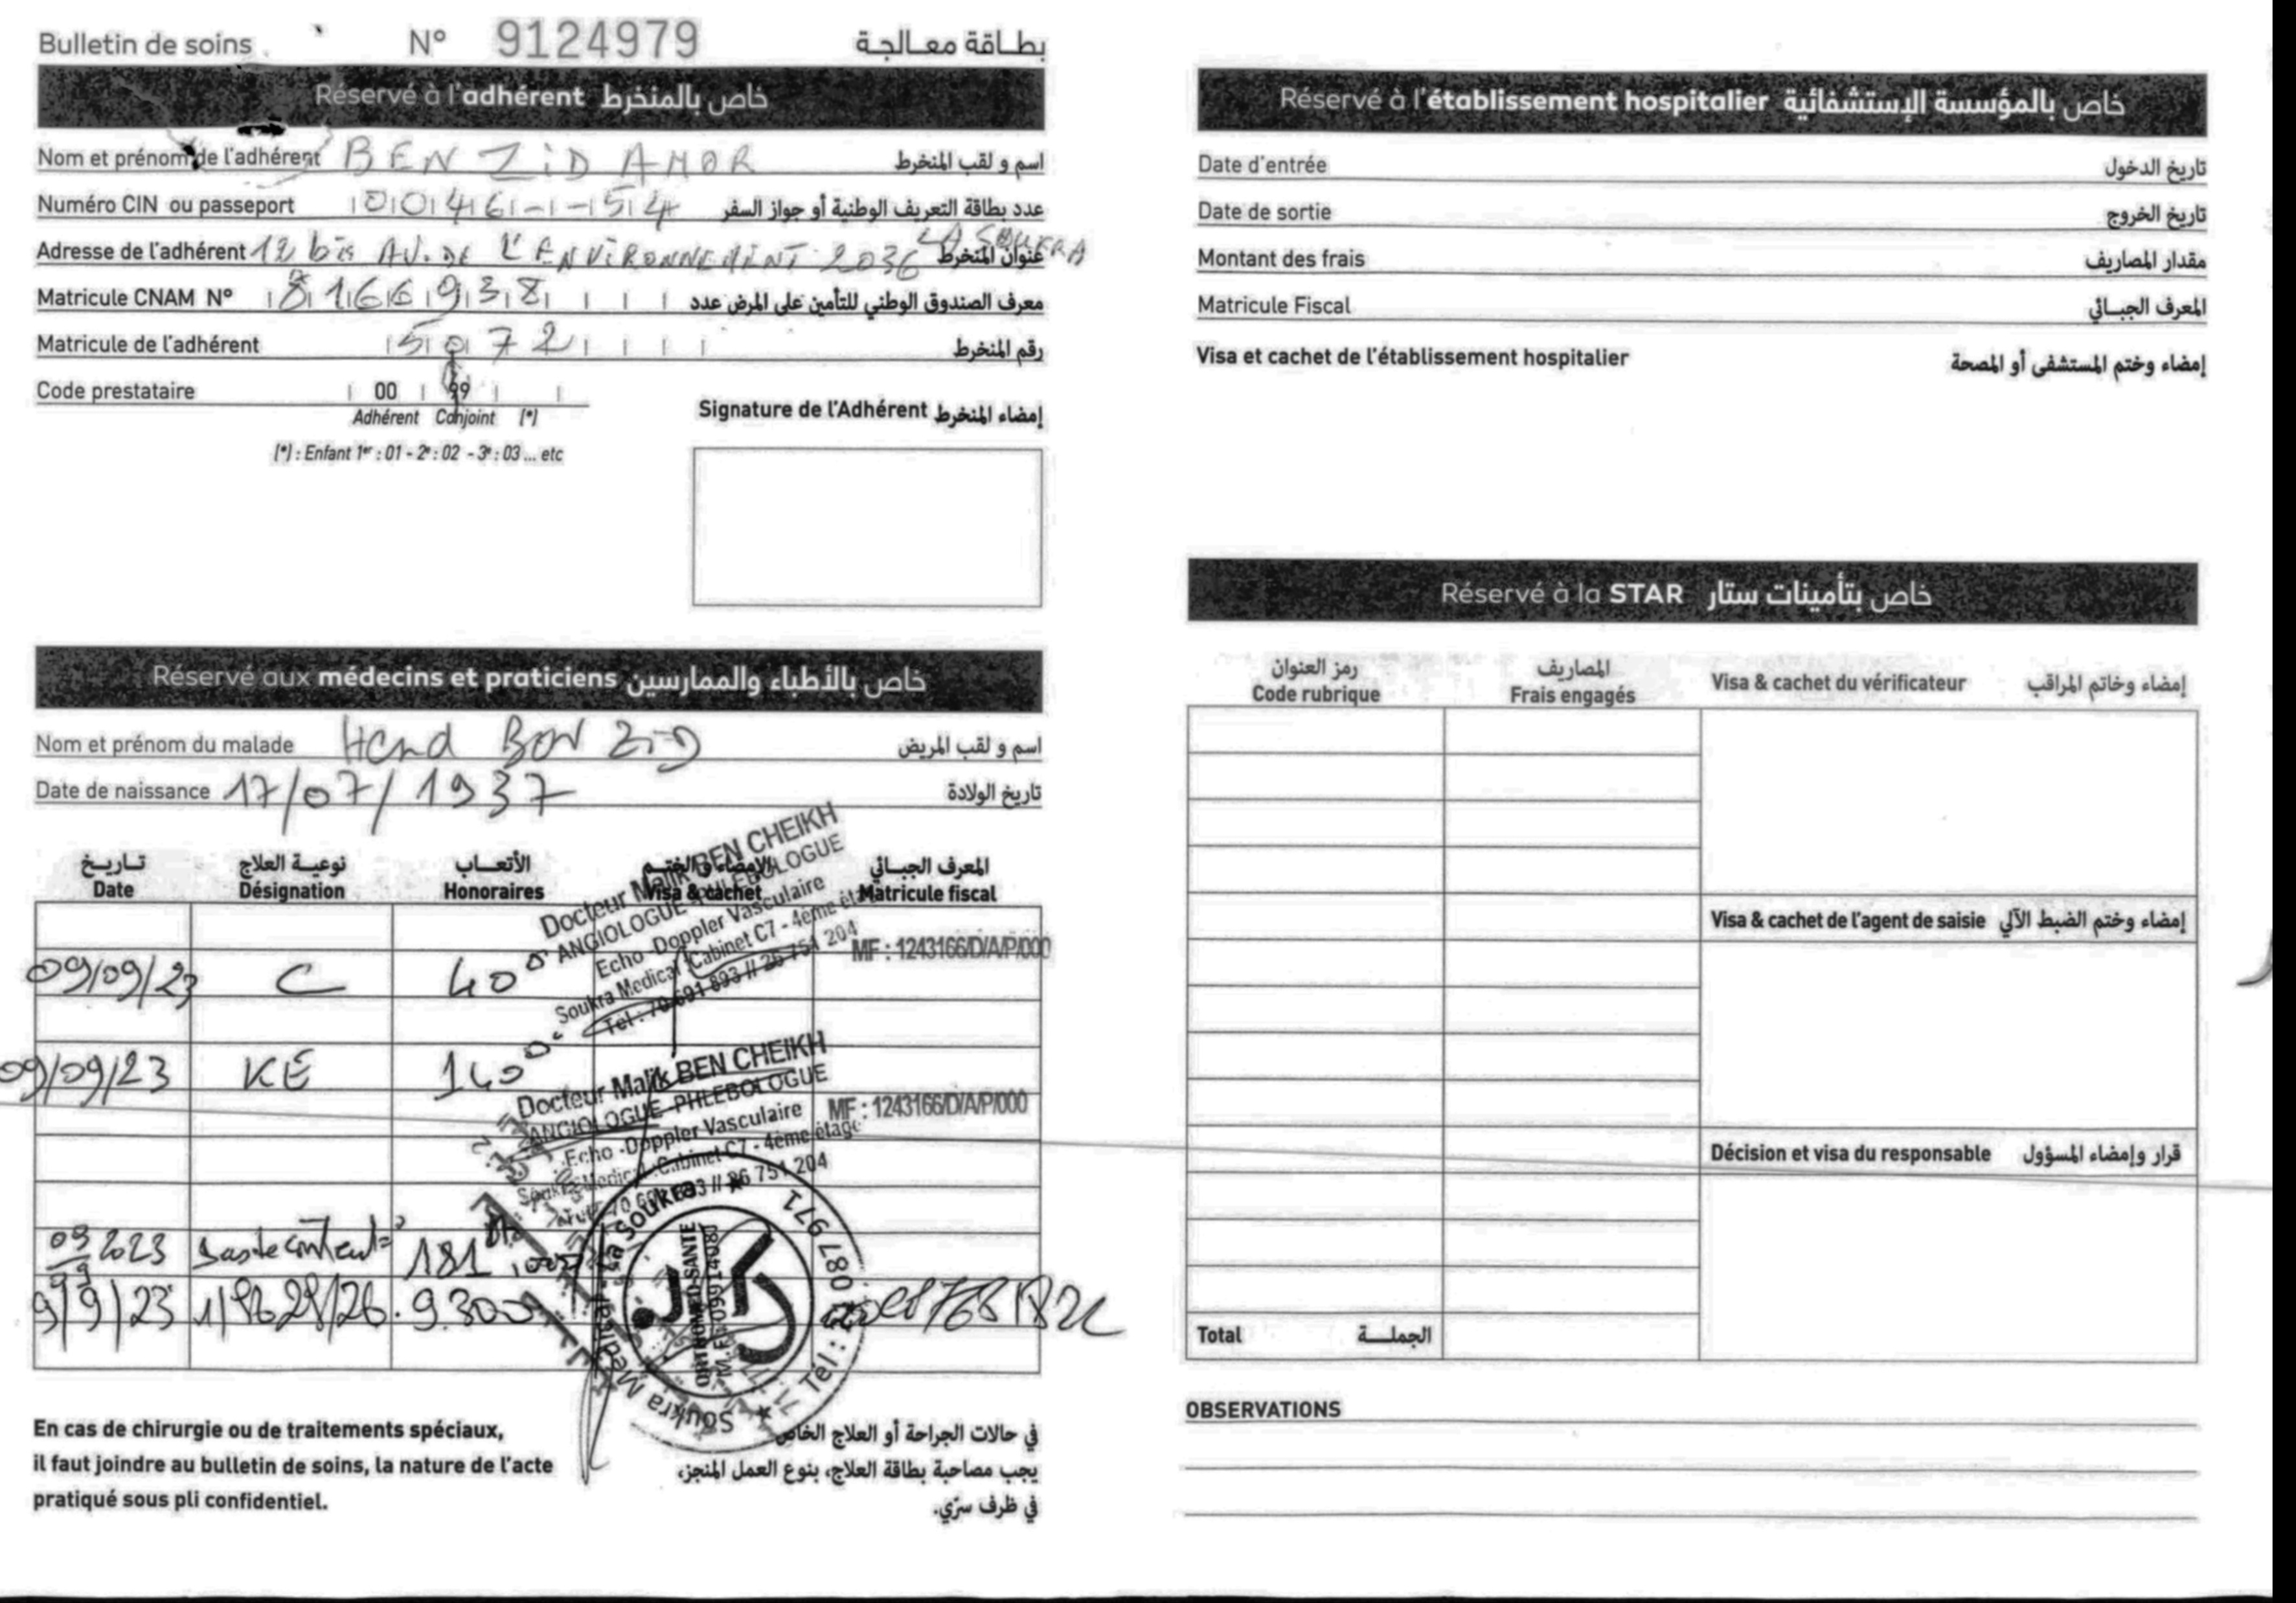 Bulletin de soins N° 9124979 بطاقة معالجة
Réservé à l'adhérent خاص بالمنخرط
Nom et prénom de l'adhérent BEN ZID AMOR اسم و لقب المنخرط
Numéro CIN ou passeport عدد بطاقة التعريف الوطنية أو جواز السفر
Adresse de l'adhérent 12 bis AV. DE L'ENVIRONNEMENT 2036 LA SOUKRA عنوان المنخرط
Matricule CNAM N° معرف الصندوق الوطني للتأمين على المرض عدد
Matricule de l'adhérent 5072 رقم المنخرط
Code prestataire 00 99
Adhérent Conjoint (*)
(*) : Enfant 1er : 01 - 2e : 02 - 3e : 03 ... etc
Signature de l'Adhérent إمضاء المنخرط
Réservé aux médecins et praticiens خاص بالأطباء والممارسين
Nom et prénom du malade اسم و لقب المريض
Date de naissance 17/07/1937 تاريخ الولادة
تاريخ نوعية العلاج الأتعاب الإمضاء و الختم المعرف الجبائي
Date Désignation Honoraires Visa & cachet Matricule fiscal
Docteur Malik BEN CHEIKH
ANGIOLOGUE PHLEBOLOGUE
Echo -Doppler Vasculaire
Soukra Medical Cabinet C7 - 4ème étage
Tel : 70 691 893 // 26 751 204
MF : 1243166/D/A/P/000
09/09/23 C 40
09/09/23 KE 140
Docteur Malik BEN CHEIKH
ANGIOLOGUE -PHLEBOLOGUE
Echo -Doppler Vasculaire
Soukra Medical Cabinet C7 - 4ème étage
70 691 893 // 26 751 204
MF : 1243166/D/A/P/000
2023 181
9/9/23 9.300
Soukra Medical - la Soukra
En cas de chirurgie ou de traitements spéciaux,
il faut joindre au bulletin de soins, la nature de l'acte
pratiqué sous pli confidentiel.
في حالات الجراحة أو العلاج الخاص
يجب مصاحبة بطاقة العلاج، بنوع العمل المنجز،
في ظرف سرّي.
Réservé à l'établissement hospitalier خاص بالمؤسسة الإستشفائية
Date d'entrée تاريخ الدخول
Date de sortie تاريخ الخروج
Montant des frais مقدار المصاريف
Matricule Fiscal المعرف الجبائي
Visa et cachet de l'établissement hospitalier إمضاء وختم المستشفى أو المصحة
Réservé à la STAR خاص بتأمينات ستار
رمز العنوان المصاريف
Code rubrique Frais engagés Visa & cachet du vérificateur إمضاء وخاتم المراقب
Visa & cachet de l'agent de saisie إمضاء وختم الضبط الآلي
Décision et visa du responsable قرار وإمضاء المسؤول
Total الجملة
OBSERVATIONS